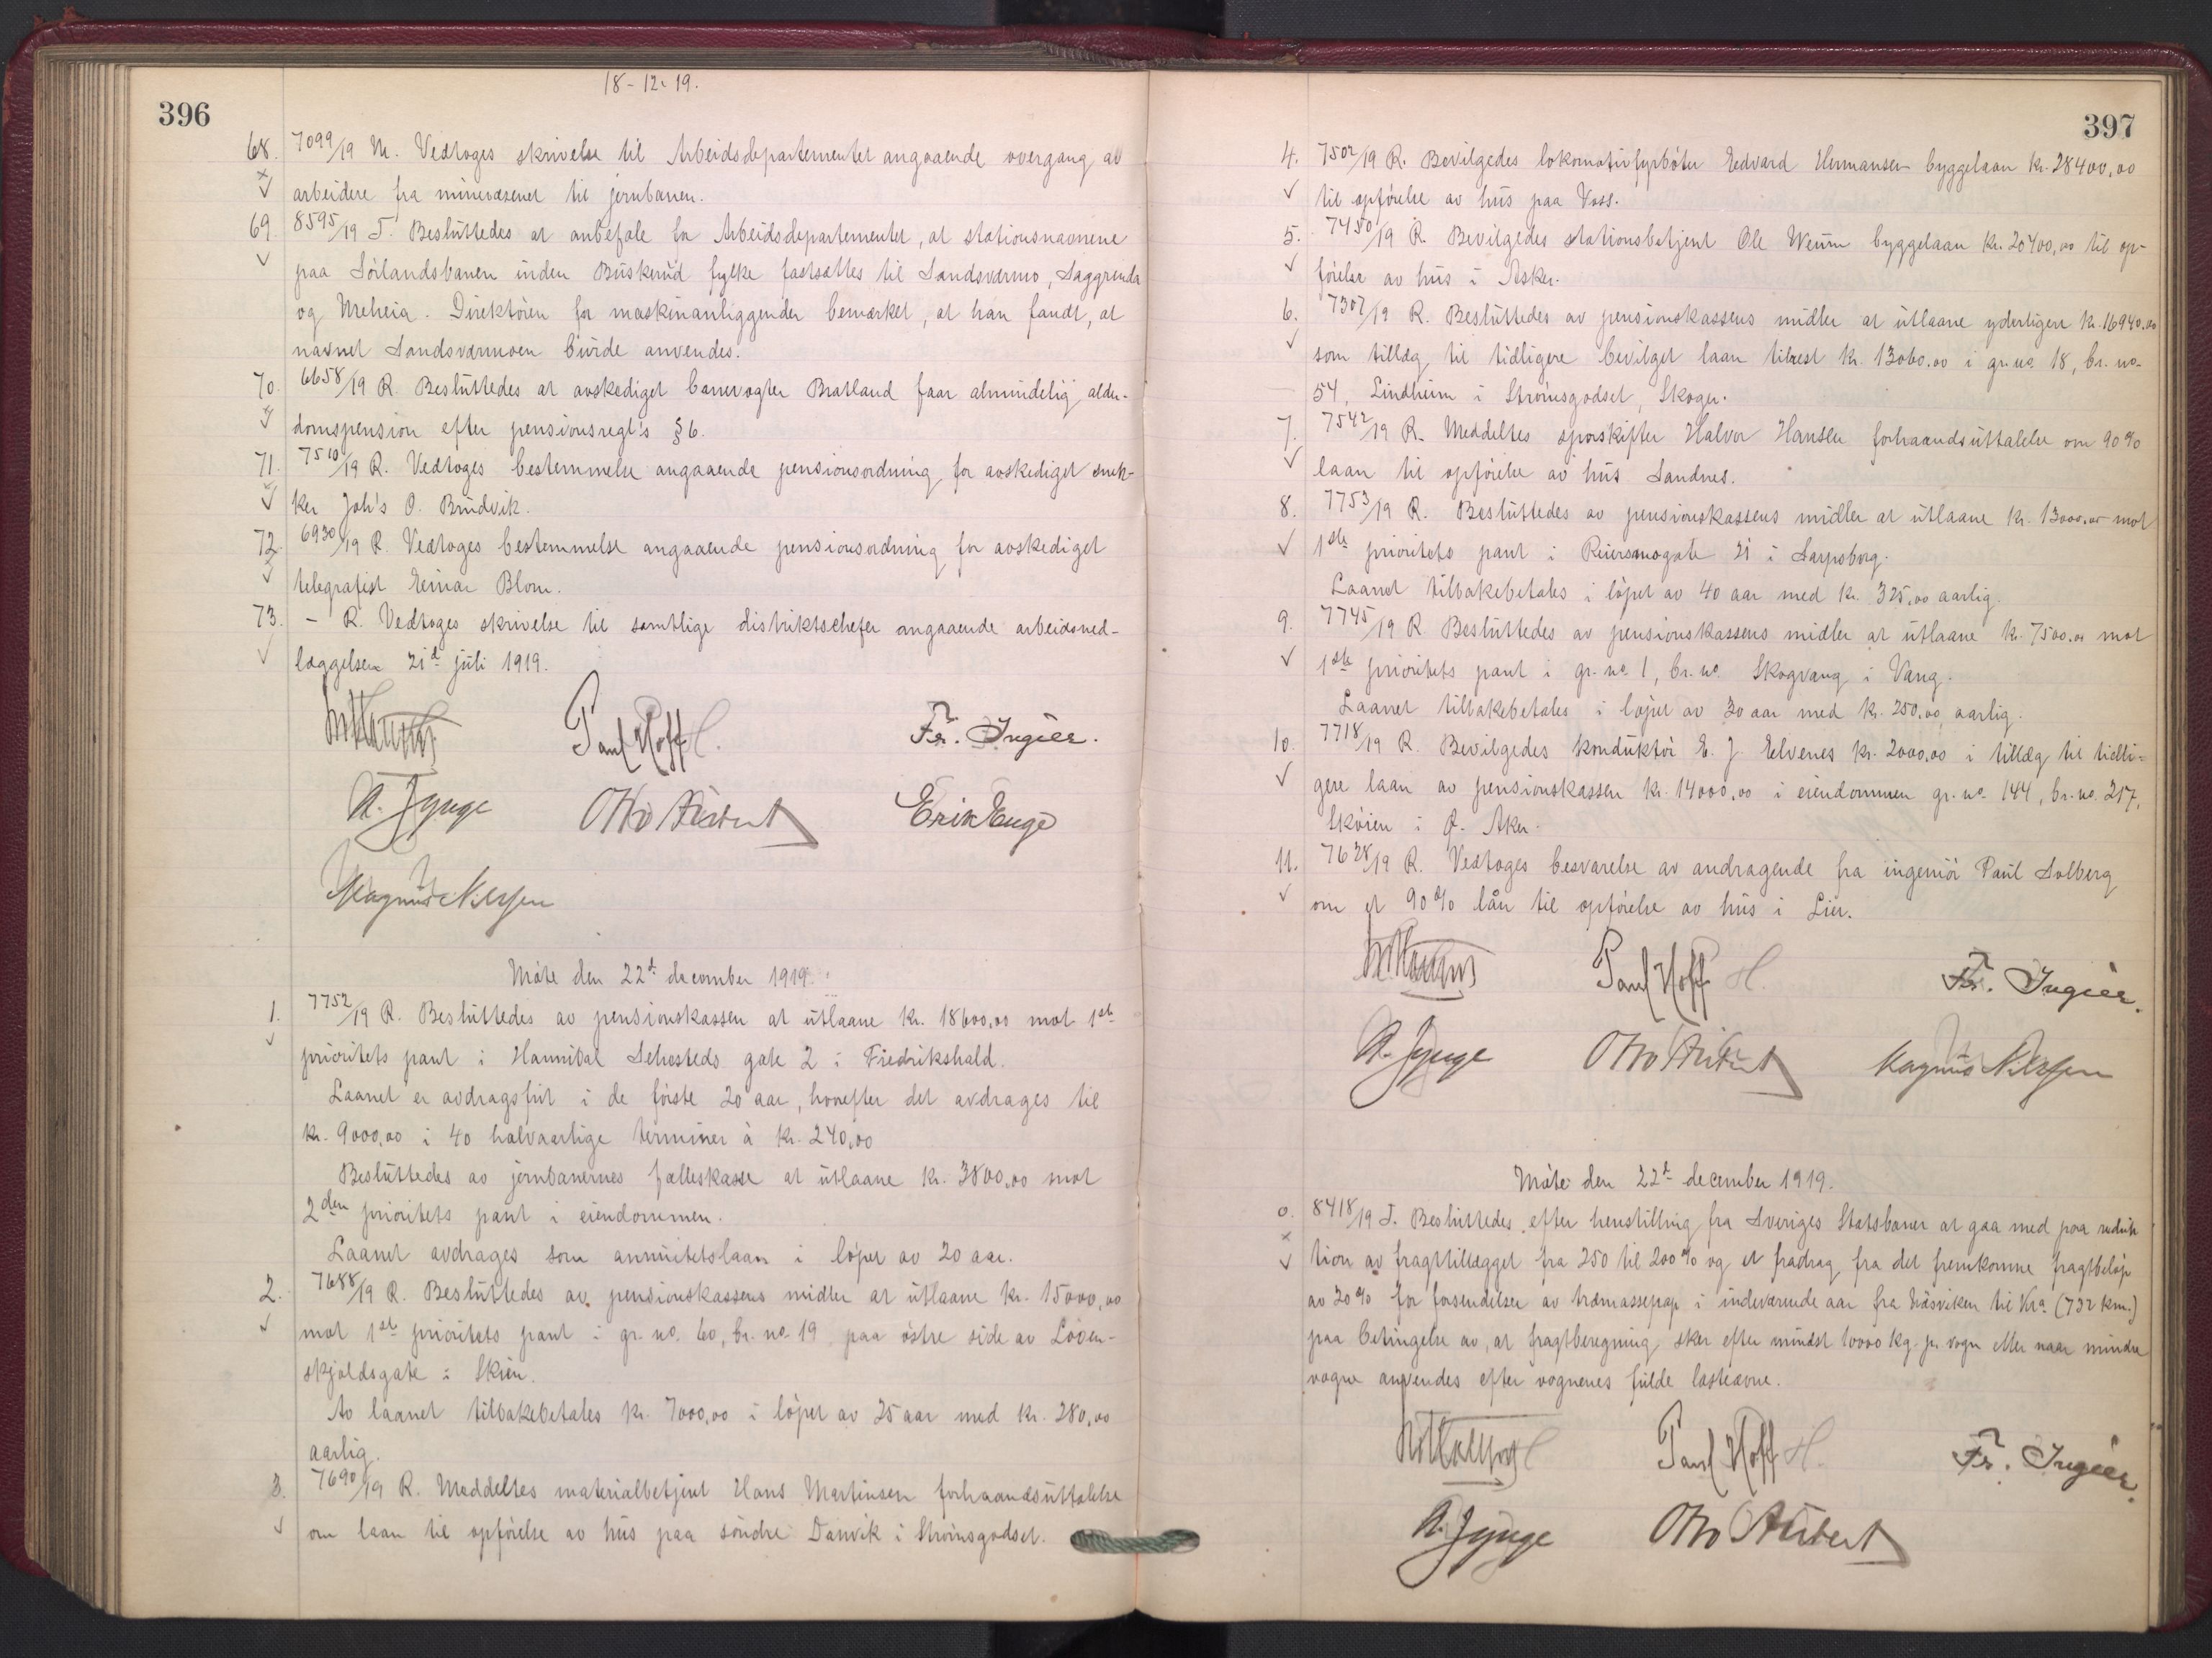 396
18-12-19.
68. 7099/19 M. Vedtoges skrivelse til Arbeidsdepartementet angaaende overgang av
arbeidere fra minevæsenet til jernbanen.
69. 8595/19 T. Besluttedes at anbefale for Arbeidsdepartementet, at stationsnavnene
paa Sørlandsbanen inden Buskerud fylke fastsættes til Sandsværmo, Saggrenda
og Meheia. Direktøren for maskinanliggender bemærket, at han fandt, at
navnet Sandsværmoen burde anvendes.
70. 6658/19 R. Besluttedes at avskediget banevogter Bratland faar almindelig alder-
domspension efter pensionsregl's § 6.
71. 7510/19 R. Vedtoges bestemmelse angaaende pensionsordning for avskediget snek-
ker Joh's O. Brudvik.
72. 6930/19 R. Vedtoges bestemmelse angaaende pensionsordning for avskediget
telegrafist Einar Blom.
73. - R. Vedtoges skrivelse til samtlige distriktschefer angaaende arbeidsned-
læggelsen 21d juli 1919.
Paul Hoff H. Fr. Ingier.
Otto Aubert Erik Enge
Magnus Nilssen
Møte den 22d december 1919.
1. 7752/19 R. Besluttedes av pensionskassen at utlaane kr. 18600,00 mot 1ste
prioritets pant i Hannibal Sehesteds gate 2 i Fredrikshald.
Laanet er avdragsfrit i de første 20 aar, hvorefter det avdrages til
kr. 9000,00 i 40 halvaarlige terminer à kr. 240,00
Besluttedes av jernbanernes fælleskasse at utlaane kr. 3800,00 mot
2den prioritets pant i eiendommen.
Laanet avdrages som annuitetslaan i løpet av 20 aar.
2. 7688/19 R. Besluttedes av pensionskassens midler at utlaane kr. 15000,00
mot 1ste prioritets pant i gr. no. 60, br. no. 19 paa østre side av Løven-
skjoldsgate i Skien.
Av laanet tilbakebetales kr. 7000,00 i løpet av 25 aar med kr. 280,00
aarlig.
3. 7690/19 R. Meddeltes materialbetjent Hans Martinsen forhaandsuttalelse
om laan til opførelse av hus paa søndre Danvik i Strømsgodset.
397
4. 7502/19 R. Bevilgedes lokomotivfyrbøter Edvard Hermansen byggelaan kr. 28400,00
til opførelse av hus paa Voss.
5. 7450/19 R. Bevilgedes stationsbetjent Ole Weum byggelaan kr. 20400,00 til op-
førelse av hus i Asker.
6. 7307/19 R. Besluttedes av pensionskassens midler at utlaane yderligere kr. 16940,00
som tillæg til tidligere bevilget laan tilrest kr. 13060.00 i gr. no. 18, br. no.
54, Lindheim i Strømsgodset, Skoger.
7. 7542/19 R. Meddeltes sporskifter Halvor Hansen forhaandsuttalelse om 90%
laan til opførelse av hus Sandnes.
8. 7753/19 R. Besluttedes av pensionskassens midler at utlaane kr. 13000,00 mot
1ste prioritets pant i Reiersensgate 21 i Sarpsborg.
Laanet tilbakebetales i løpet av 40 aar med kr. 325,00 aarlig.
9. 7745/19 R. Besluttedes av pensionskassens midler at utlaane kr. 7500.00 mot
1ste prioritets pant i gr. no. 1, br. no. Skogvang i Vang.
Laanet tilbakebetales i løpet av 30 aar med kr. 250,00 aarlig.
10. 7718/19 R. Bevilgedes konduktør E. J. Elvenes kr. 2000,00 i tillæg til tidli-
gere laan av pensionskassen kr. 14000,00 i eiendommen gr. no. 144, br. no. 217,
Skøien i Ø. Aker.
11. 7628/19 R. Vedtoges besvarelse av andragende fra ingeniør Paul Solberg
om et 90% lån til opførelse av hus i Lier.
Paul Hoff H. Fr. Ingier.
Otto Aubert Magnus Nilssen
Møte den 22d december 1919.
0. 8418/19 T. Besluttedes efter henstilling fra Sveriges Statsbaner at gaa med paa reduk
tion av fragttillægget fra 250 til 200% og et fradrag fra det fremkomne fragtbeløp
av 20% for forsendelser av træmassepap i indeværende aar fra Näsviken til Kra (732 km.)
paa betingelse av, at fragtberegning sker efter mindst 10000 kg. pr. vogn eller naar mindre
vogne anvendes efter vognenes fulde lasteævne.
Paul Hoff H. Fr. Ingier.
Otto Aubert